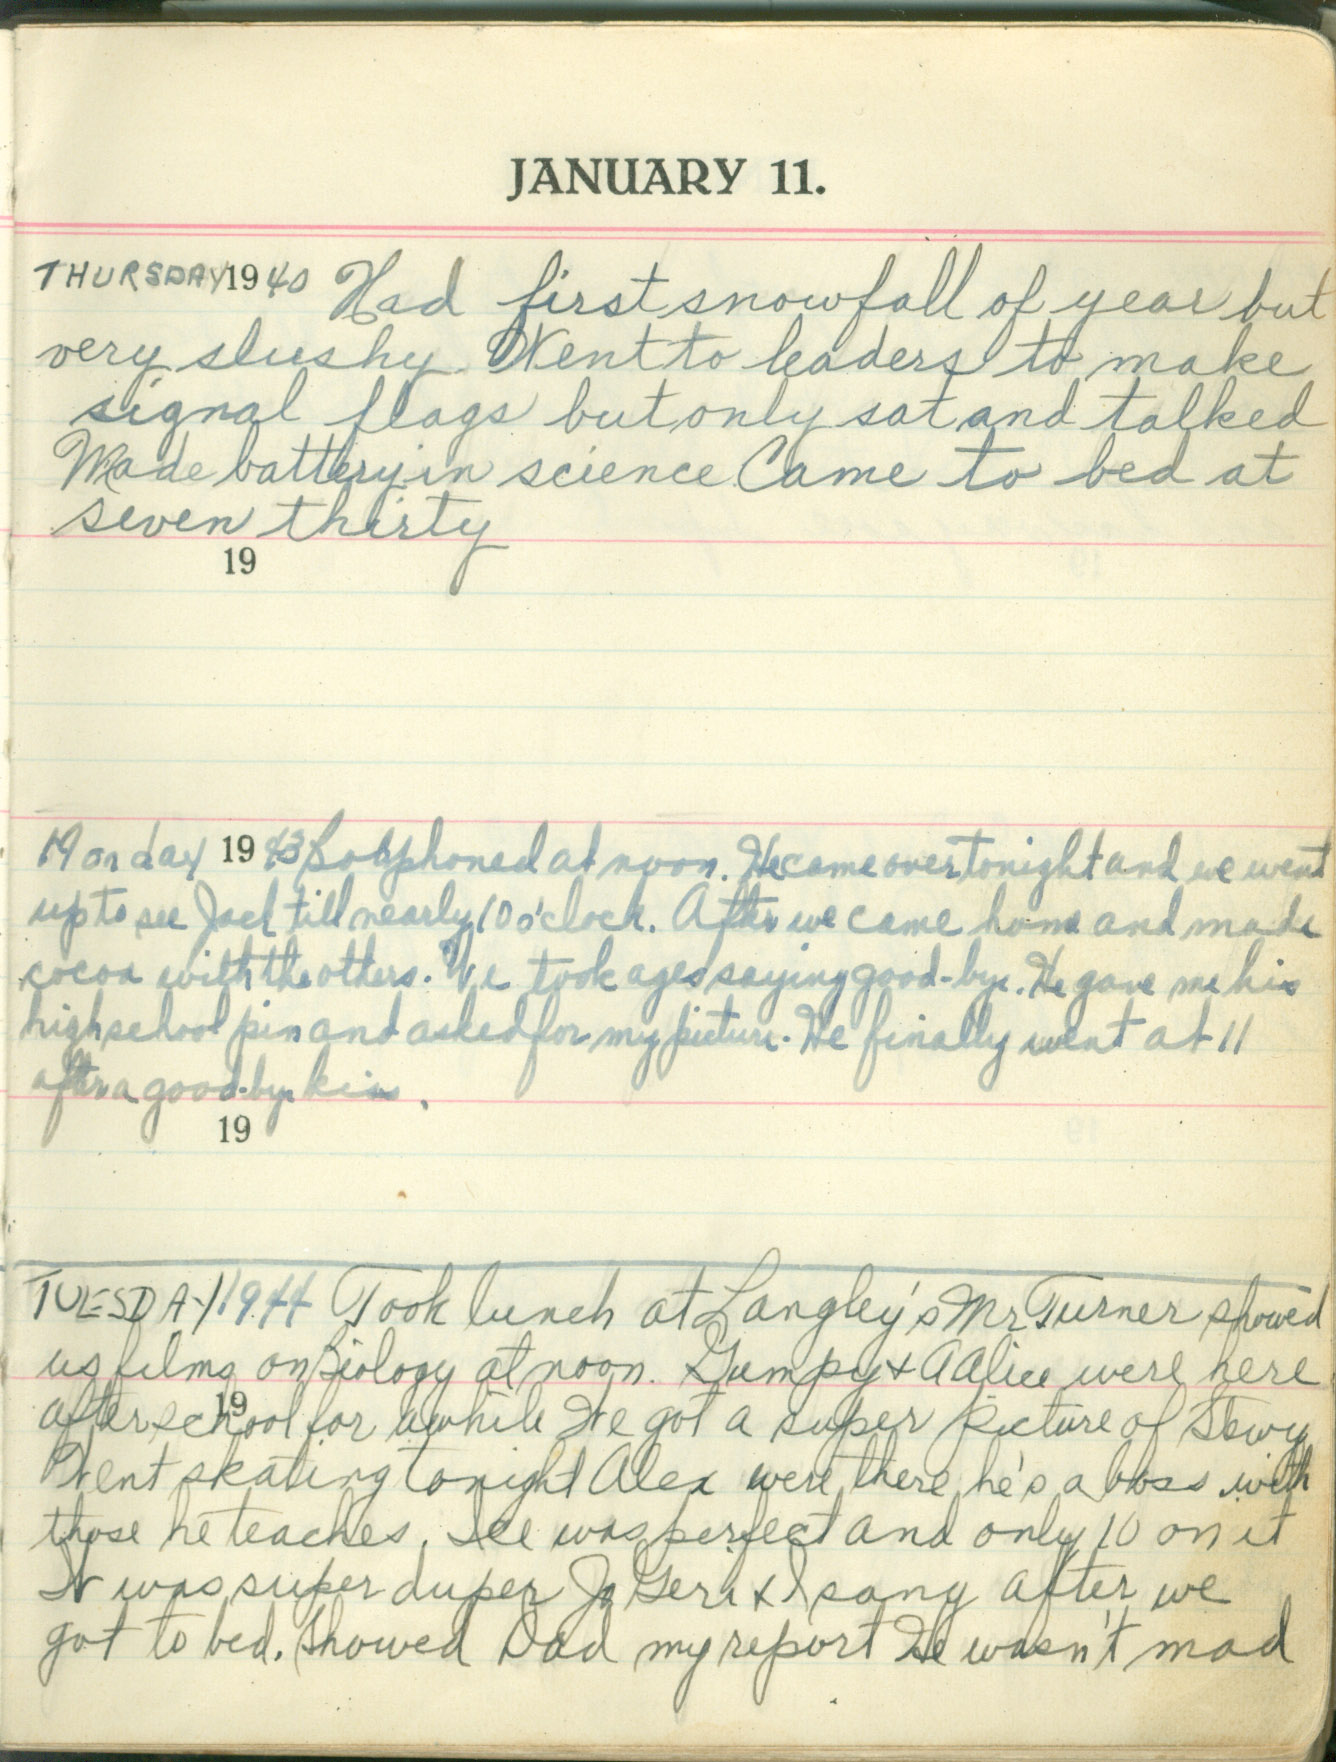 JANUARY 11.
THURSDAY 1940 Had first snowfall of year but
very slushy. Went to leaders to make
signal flags but only sat and talked
Made battery in science. Came to bed at
seven thirty
19
Monday 1943 Bob phoned at noon. He came over tonight and we went
up to see Jack till nearly 10 o'clock. After we came home and made
cocoa with the others. We took ages saying good-bye. He gave me his
high school pin and asked for my picture. He finally went at 11
after a good-bye kiss.
19
TUESDAY 1944 Took lunch at Langley's Mr Turner showed
us films on Biology at noon. Gumpy & Alice were here
19
after school for awhile We got a super picture of Stewy
Went skating tonight Alex were there he's a boss with
those he teaches. Ice was perfect and only 10 on it
It was super duper Jo Geri & I sang after we
got to bed. Showed Dad my report He wasn't mad